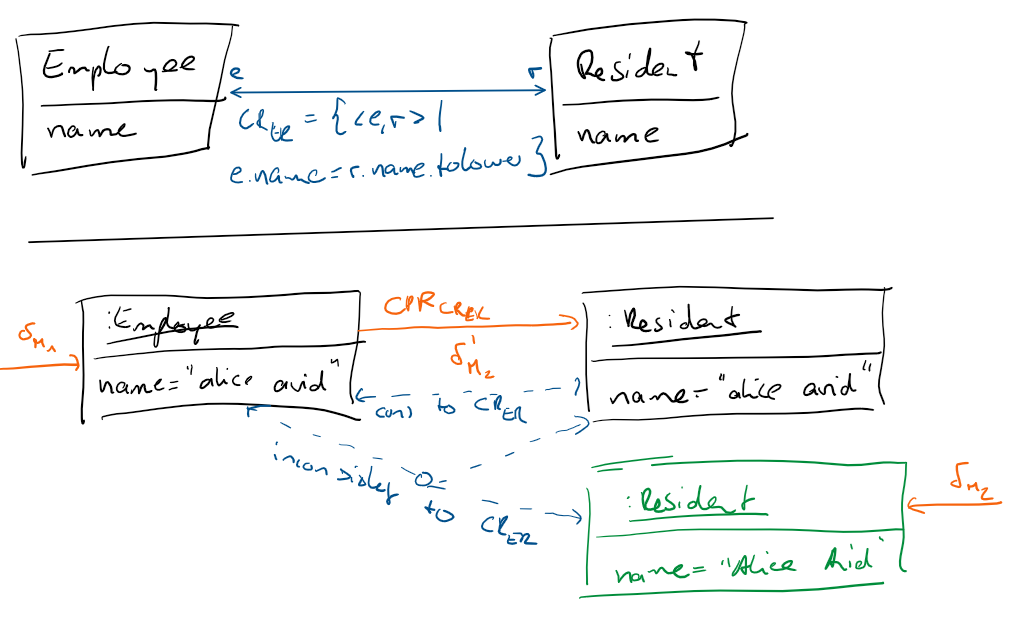 Employee
name
e r
CR_ER = {<e,r> |
e.name=r.name.tolower }
Resident
name
δ_M1
:Employee
name="alice avid"
CPR_CRER
δ'_M2
:Resident
name="alice avid"
cons to CR_ER
to CR_ER
:Resident
name="Alice Avid"
δ_M2